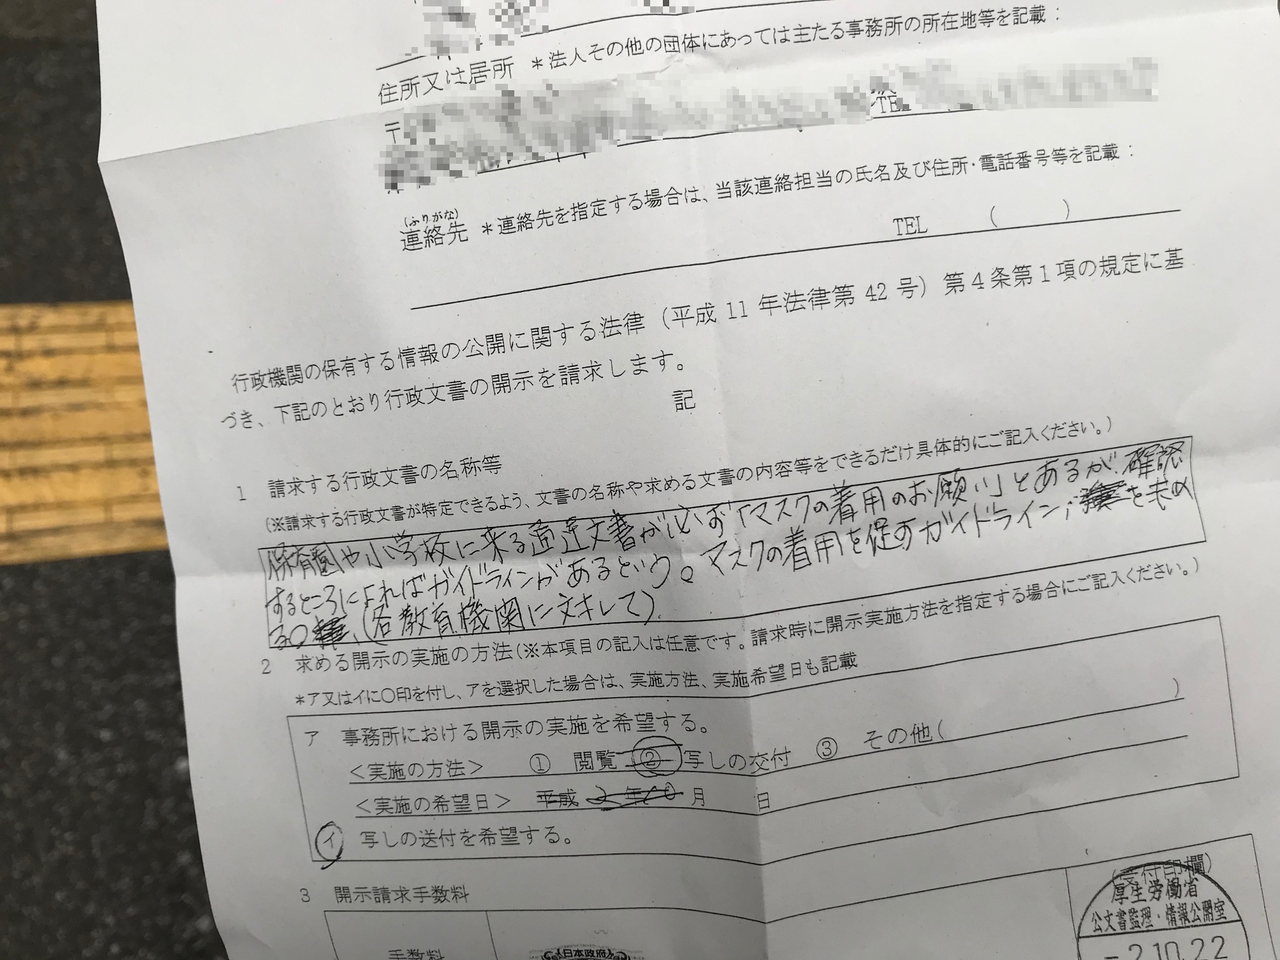 住所又は居所 *法人その他の団体にあっては主たる事務所の所在地等を記載:
〒
TEL
(ふりがな)
連絡先 *連絡先を指定する場合は、当該連絡担当の氏名及び住所・電話番号等を記載:
TEL ( )
行政機関の保有する情報の公開に関する法律(平成11年法律第42号)第4条第1項の規定に基
づき、下記のとおり行政文書の開示を請求します。
記
1 請求する行政文書の名称等
(※請求する行政文書が特定できるよう、文書の名称や求める文書の内容等をできるだけ具体的にご記入ください。)
保育園や小学校に来る通達文書が必ず「マスクの着用のお願い」とあるが、確認
するところによればガイドラインがあるという。マスクの着用を促すガイドライン を求め
る (各教育機関に対して)
2 求める開示の実施の方法(※本項目の記入は任意です。請求時に開示実施方法を指定する場合にご記入ください。)
*ア又はイに○印を付し、アを選択した場合は、実施方法、実施希望日も記載
ア 事務所における開示の実施を希望する。
<実施の方法> ① 閲覧 ② 写しの交付 ③ その他( )
<実施の希望日> 平成 2年10月 日
イ 写しの送付を希望する。
3 開示請求手数料
(受付印欄)
手数料
日本政府
厚生労働省
公文書監理・情報公開室
-2.10.22